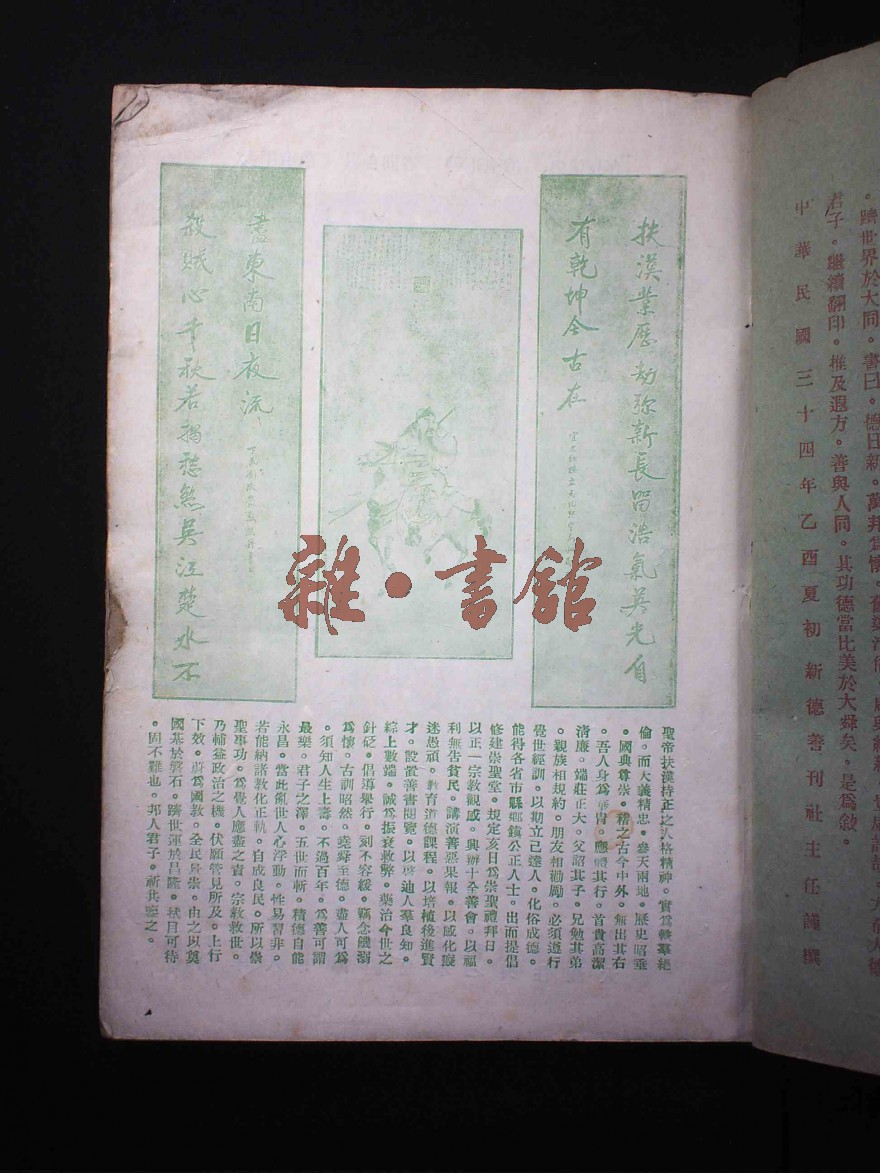 。躋世界於大同。書曰。德日新。萬邦爲懷。
君子。繼續翻印。推及遐方。善與人同。其功德當比美於大舜矣。是爲敘。
中華民國三十四年乙酉夏初新德善刊社主任謹撰
扶漢業歷劫弥新長留浩氣英光自
有乾坤今古在
殺賊心千秋若揭愁煞吳江楚水不
盡東南日夜流
雜·書館
聖帝扶漢持正之人格精神。實爲軼羣絕
倫。而大義精忠。參天兩地。歷史昭垂
。國典尊崇。稽之古今中外。無出其右
。吾人身爲華胄。應體其行。首貴高潔
清廉。端莊正大。父詔其子。兄勉其弟
。親族相規約。朋友相勸勵。必須遵行
覺世經訓。以期立己達人。化俗成德。
能待各省市縣鄉鎮公正人士。出而提倡
修建崇聖堂。規定亥日爲崇聖禮拜日。
以正一宗教觀感。興辦十全善會。以福
利無告貧民。講演善惡果報。以感化癡
迷愚頑。教育道德課程。以培植後進賢
才。設置善書閱覽。以啓迪人羣良知。
綜上數端。誠爲振衰救弊。藥治今世之
針砭。倡導舉行。刻不容緩。竊念饑溺
爲懷。古訓昭然。堯舜至德。盡人可爲
。須知人生上壽。不過百年。爲善可謂
最樂。君子之澤。五世而斬。積德自能
永昌。當此亂世人心浮動。性易習非。
若能納諸教化正軌。自成良民。所以崇
聖事功。爲覺人應盡之責。宗教救世。
乃輔益政治之機。伏願管見所及。上行
下效。蔚爲國教。全民景崇。由之以奠
國基於磐石。躋世運於昌隆。拭目可待
。固不難也。邦人君子。祈共鑒之。